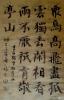 眾鳥高飛盡孤
雲獨去閒相看
兩不厭祇有敬
亭山